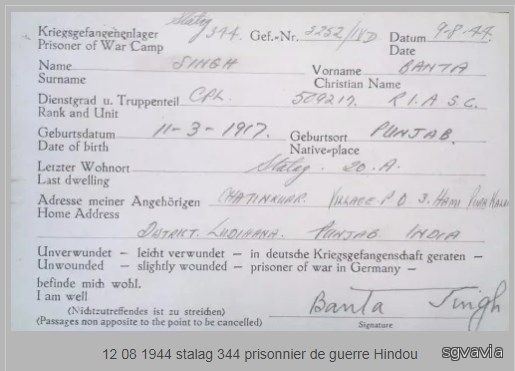 Kriegsgefangenenlager Stalag 344. Gef.-Nr. 3252/IVD Datum 9-8-44.
Prisoner of War Camp Date
Name SINGH Vorname BANTA
Surname Christian Name
Dienstgrad u. Truppenteil CPL. 509217. R.I.A.S.C.
Rank and Unit
Geburtsdatum 11-3-1917. Geburtsort PUNJAB.
Date of birth Native-place
Letzter Wohnort Stalag. 20.A.
Last dwelling
Adresse meiner Angehörigen VILLAGE P O
Home Address DISTRICT. LUDIHANA. PUNJAB INDIA
Unverwundet - leicht verwundet - in deutsche Kriegsgefangenschaft geraten -
Unwounded - slightly wounded - prisoner of war in Germany -
befinde mich wohl.
I am well
(Nichtzutreffendes ist zu streichen) Banta Singh
(Passages non apposite to the point to be cancelled) Signature
12 08 1944 stalag 344 prisonnier de guerre Hindou
sgvavia